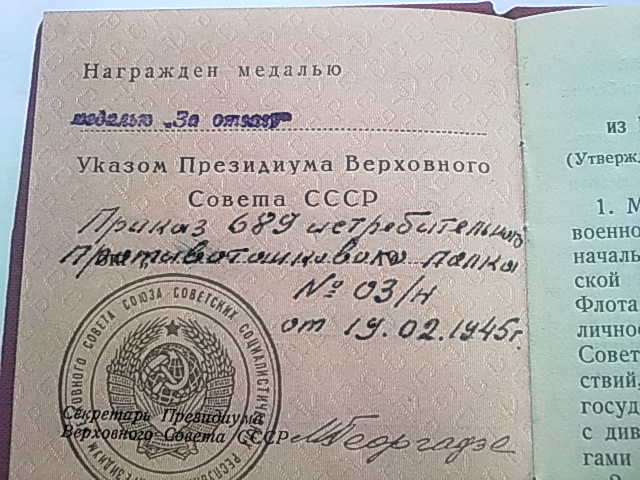 Награжден медалью
медалью „За отвагу"
Указом Президиума Верховного
Совета СССР
Приказ 689 истребительного
Противотанкового полка
№ 03/н
от 19.02.1945г.
Секретарь Президиума
Верховного Совета СССР
МГеоргадзе
ВЕРХОВНОГО СОВЕТА СОЮЗА СОВЕТСКИХ СОЦИАЛИСТИЧЕ
РЕСПУБЛИК
ПРЕЗИДИУМ
из
(Утверж
1. М
военно
началь
ской
Флота
личнос
Совет
ствий,
госуд
с див
гами